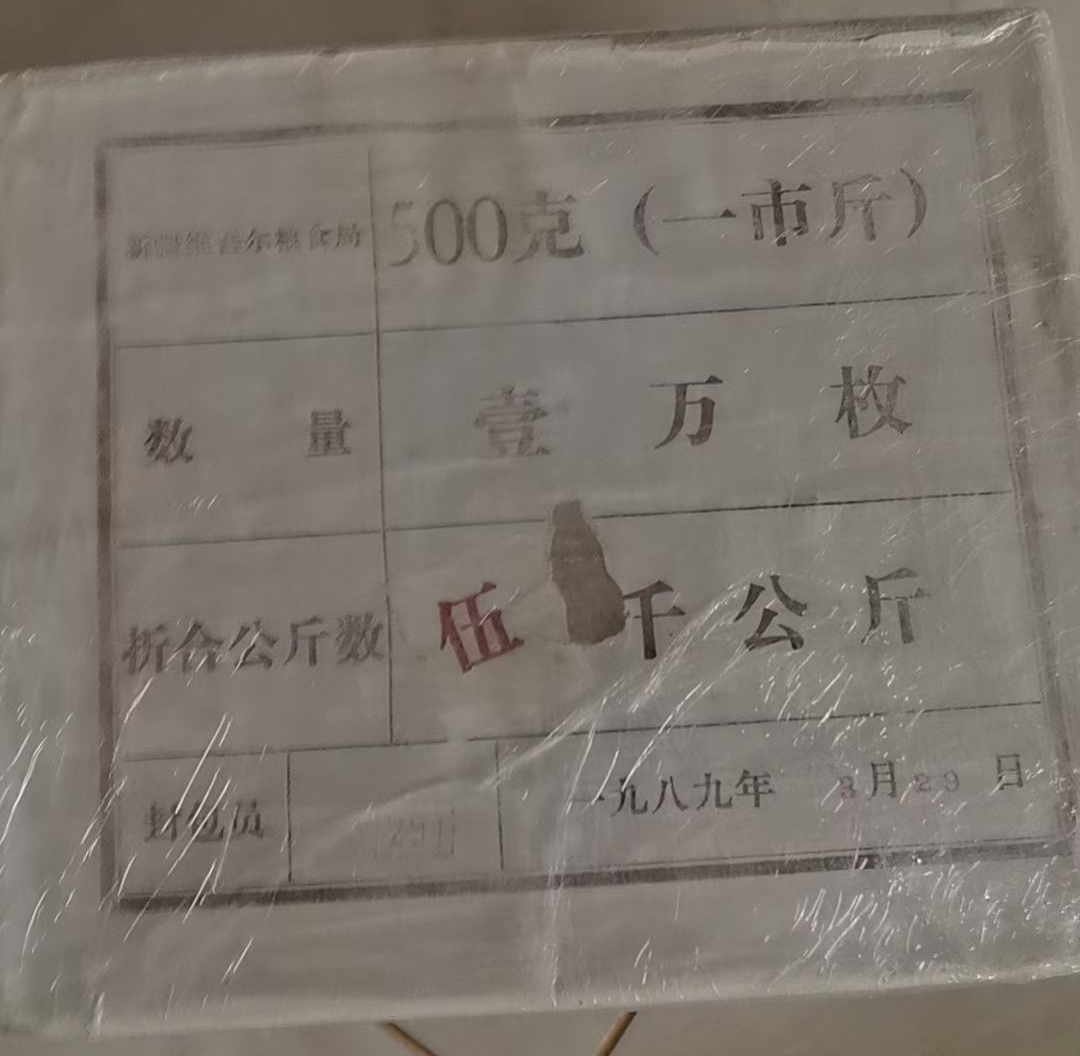 新疆维吾尔粮食局 500克（一市斤）
数量 壹万枚
折合公斤数 伍千公斤
封包员 一九八九年 3月29日